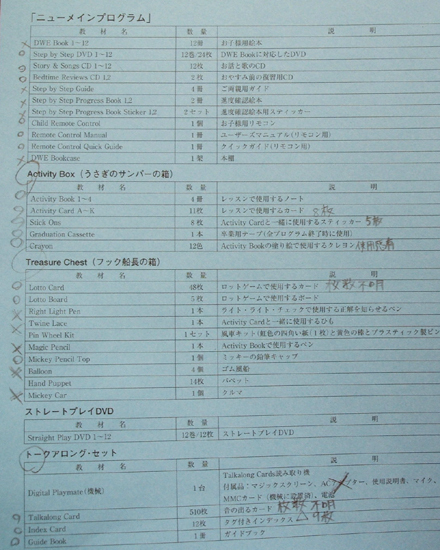 「ニューメインプログラム」
教 材 名 数 量 説 明
DWE Book 1～12 12冊 お子様用絵本
Step by Step DVD 1～12 12巻/24枚 DWE Bookに対応したDVD
Story & Songs CD 1～12 12枚 お話と歌のCD
Bedtime Reviews CD 1,2 2枚 おやすみ前の復習用CD
Step by Step Guide 4冊 ご両親用ガイド
Step by Step Progress Book 1,2 2冊 進度確認絵本
Step by Step Progress Book Sticker 1,2 2セット 進度確認絵本用ステッカー
Child Remote Control 1個 お子様用リモコン
Remote Control Manual 1冊 ユーザーズマニュアル(リモコン用)
Remote Control Quick Guide 1冊 クイックガイド(リモコン用)
DWE Bookcase 1架 本棚
Activity Box（うさぎのサンパーの箱）
教 材 名 数 量 説 明
Activity Book 1～4 4冊 レッスンで使用するノート
Activity Card A～K 11枚 レッスンで使用するカード 枚
Stick Ons 8枚 Activity Cardと一緒に使用するステッカー 5枚
Graduation Cassette 1本 卒業用テープ(全プログラム終了時に使用)
Crayon 12色 Activity Bookの塗り絵で使用するクレヨン 使用感有
Treasure Chest（フック船長の箱）
教 材 名 数 量 説 明
Lotto Card 48枚 ロットゲームで使用するカード 枚数不明
Lotto Board 5枚 ロットゲームで使用するボード
Right Light Pen 1本 ライト・ライト・チェックで使用する正解を知らせるペン
Twine Lace 1本 Activity Cardと一緒に使用するひも
Pin Wheel Kit 1セット 風車キット(虹色の四角い紙(1枚)と黄色の棒とプラスティック製ピン
Magic Pencil 1本 Activity Bookで使用するペン
Mickey Pencil Top 1個 ミッキーの鉛筆キャップ
Balloon 4個 ゴム風船
Hand Puppet 14枚 パペット
Mickey Car 1個 クルマ
ストレートプレイDVD
教 材 名 数 量 説 明
Straight Play DVD 1～12 12巻/12枚 ストレートプレイDVD
トークアロング・セット
教 材 名 数 量 説 明
Digital Playmate(機械) 1台 Talkalong Cards読み取り機
付属品：マジックスクリーン、ACアダプター、使用説明書、マイク、
MMCカード（機械に設置済）、電池
Talkalong Card 510枚 音の出るカード 枚数不明
Index Card 12枚 タグ付きインデックス 9枚
Guide Book 1冊 ガイドブック